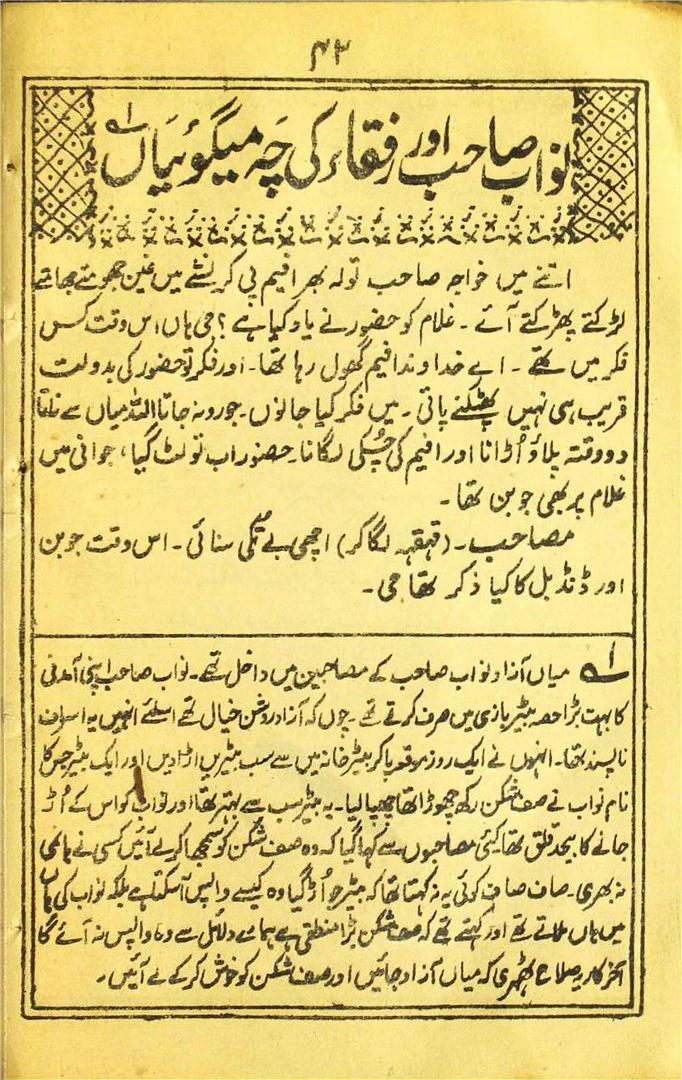 ۴۲
نواب صاحب اور رفقاء کی چہ میگوئیاں ۱ے
اتنے میں خواجہ صاحب تولہ بھر افیم پی کر نشے میں غین جھومتے جھامتے
لڑکتے پھڑکتے آئے ۔ غلام کو حضور نے یاد کیا ہے ؟ جی ہاں اس وقت کس
فکر میں تھے ۔ اے خداوند افیم گھول رہا تھا ۔ اور فکر تو حضور کی بدولت
قریب ہی نہیں پھٹکنے پاتی ۔ میں فکر کیا جانوں ۔ جورو نہ جاتا اللہ میاں سے ناتا
دو وقتہ پلاؤ اُڑانا اور افیم کی چُسکی لگانا ۔ حضور اب تو لٹ گیا ، جوانی میں
غلام پر بھی جوبن تھا ۔
مصاحب ۔ (قہقہہ لگا کر) اچھی بے تکی سنائی ۔ اس وقت جوبن
اور ڈنڈ بل کا کیا ذکر تھا جی ۔
۱ے میاں آزاد نواب صاحب کے مصاحبین میں داخل تھے ۔ نواب صاحب اپنی آمدنی
کا بہت بڑا حصہ بٹیر بازی میں صرف کرتے تھے ۔ چوں کہ آزاد روشن خیال تھے اسلئے انہیں یہ اسراف
ناپسند تھا ۔ انہوں نے ایک روز موقعہ پاکر بٹیر خانہ میں سے سب بٹیریں اڑا دیں اور ایک بٹیر جس کا
نام نواب نے صف شکن رکھ چھوڑا تھا چھپا لیا ۔ یہ بٹیر سب سے بہتر تھا اور نواب کو اس کے اُڑ
جانے کا بیحد قلق تھا کئی مصاحبوں سے کہا گیا کہ وہ صف شکن کو سمجھا کر لے آئیں کسی نے حامی
نہ بھری ۔ صاف صاف کوئی یہ نہ کہتا تھا کہ بٹیر جو اُڑ گیا وہ کیسے واپس آسکتا ہے بلکہ نواب کی ہاں
میں ہاں ملاتے تھے اور کہتے تھے کہ صف شکن بڑا منطقی ہے ہمارے دلائل سے وہ واپس نہ آئے گا
آخر کار یہ صلاح ٹھہری کہ میاں آزاد جائیں اور صف شکن کو خوش کر کے لے آئیں ۔